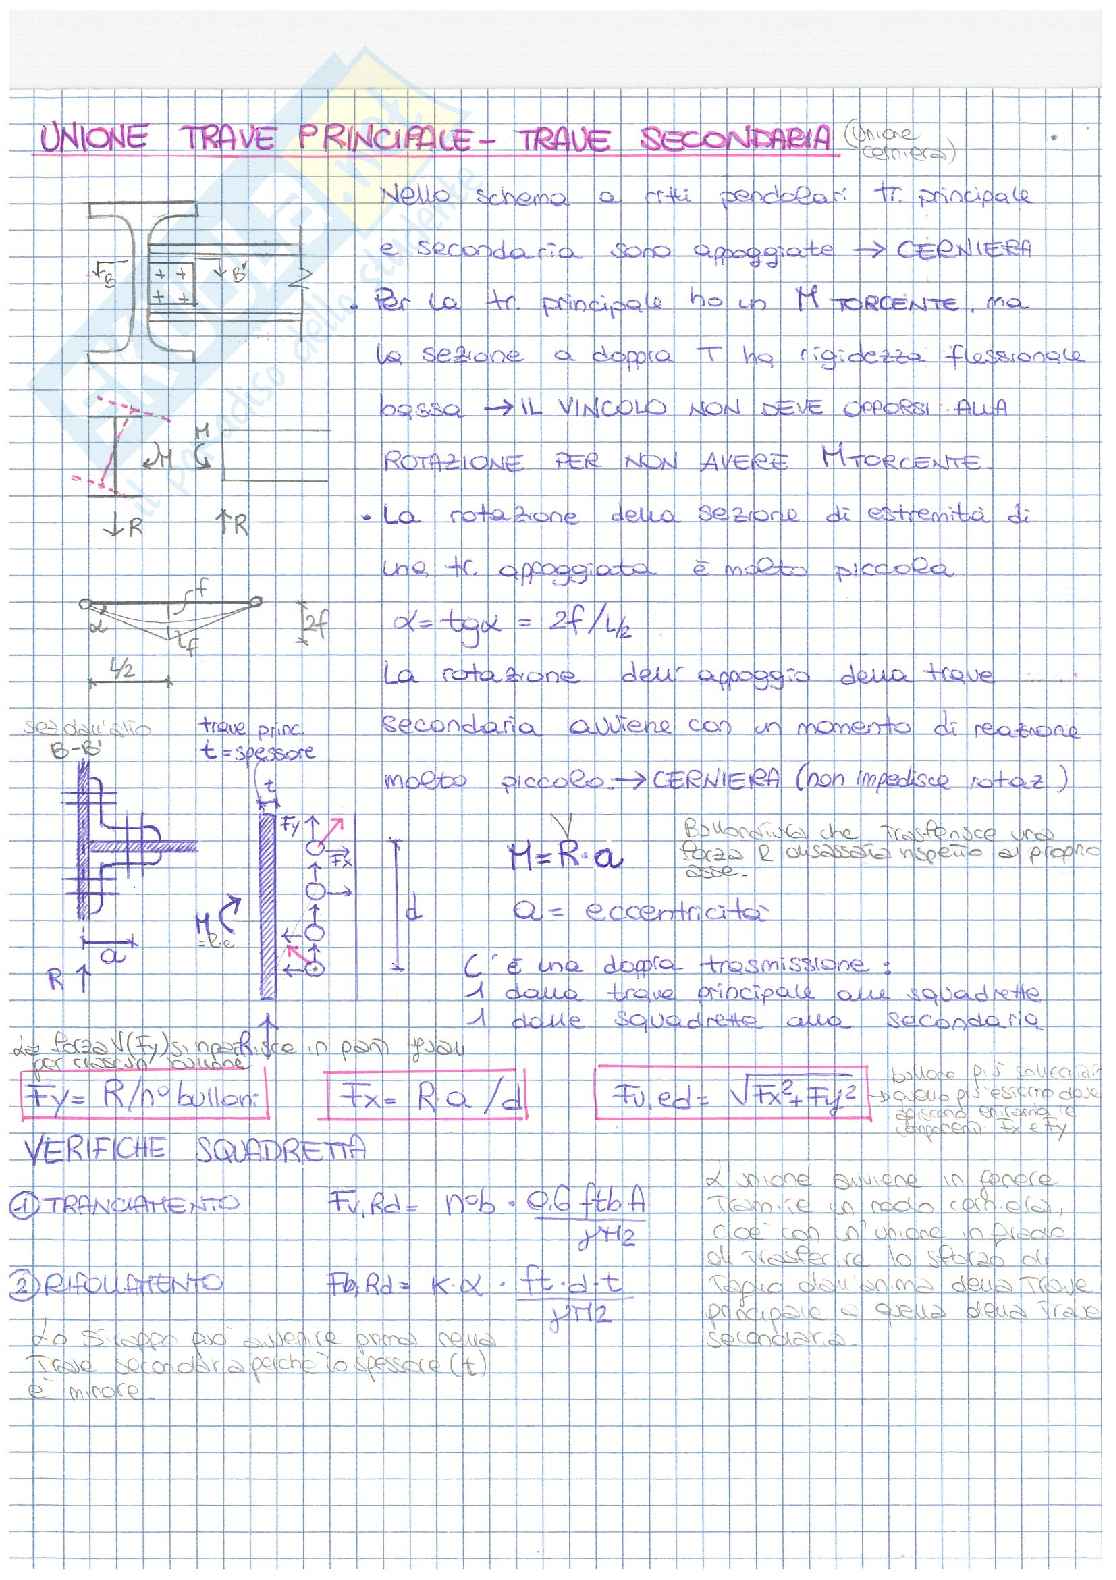 UNIONE TRAVE PRINCIPALE - TRAVE SECONDARIA (Unione cerniera)
Nello schema a ritti pendolari tr. principale
e secondaria sono appoggiate → CERNIERA
• Per la tr. principale ho un M TORCENTE, ma
la sezione a doppia T ha rigidezza flessionale
bassa → IL VINCOLO NON DEVE OPPORSI ALLA
ROTAZIONE PER NON AVERE M TORCENTE
• La rotazione della sezione di estremità di
una tr. appoggiata è molto piccola
α = tgα = 2f / L/2
La rotazione dell'appoggio della trave
secondaria avviene con un momento di reazione
molto piccolo → CERNIERA (non impedisce rotaz.)
B B'
M M
↓R ↑R
f
α f 2f
L/2
sez dall'alto
B-B'
trave princ.
t = spessore
t
Fy Fx
d
M
= R·a
a
R ↑
R
M = R·a
Bulloneria che trasferisce una
forza R disassata rispetto al proprio
asse.
a = eccentricità
C'è una doppia trasmissione:
1 dalla trave principale alle squadrette
1 dalle squadrette alla secondaria
La forza V(Fy) si ripartisce in parti uguali
per ciascun bullone
Fy = R/n° bulloni
Fx = R·a/d
Fv,ed = √Fx²+Fy²
bullone più
→ quello più esterno dove
componenti Fx e Fy
VERIFICHE SQUADRETTA
① TRANCIAMENTO Fv,Rd = n°b · 0.6 ftb A / γM2
② RIFOLLAMENTO Fb,Rd = K·α · ft·d·t / γM2
Lo strappo può avvenire prima nella
Trave secondaria perché lo spessore (t)
è minore.
L'unione avviene in genere
Tramite un nodo cerniera,
cioè con un'unione in grado
di trasferire lo sforzo di
Taglio dall'anima della Trave
principale a quella della Trave
secondaria.
SKUOLA.net
il paradiso dello studente